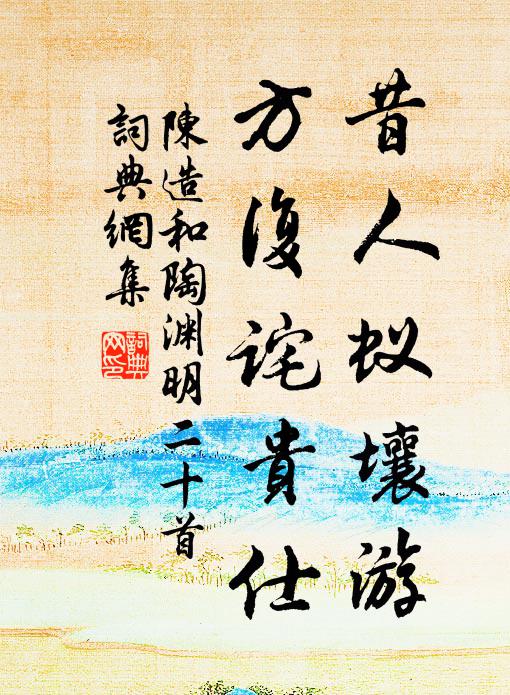 昔人蚁壤游
方復詫貴仕
陳造和陶渊明二十首
詞典網集
詞典
网印